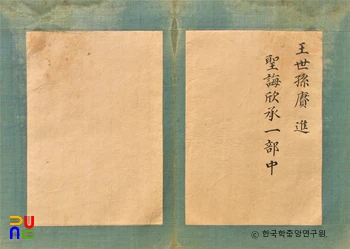 王世孫賡進
聖誨欣承一部中
ⓒ 한국학중앙연구원